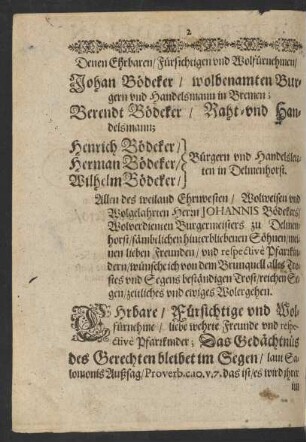 2
Denen Ehrbaren/ Fürsichtigen vnd Wolfürnehmen/
Johan Bödeker/ wolbenamten Bur-
gern vnd Handelsmann in Bremen;
Berendt Bödeker/ Raht- vnd Han-
delsmann;
Henrich Bödeker/
Herman Bödeker/
Wilhelm Bödeker/
Bürgern vnd Handelsleu-
ten in Delmenhorst.
Allen des weiland Ehrnvesten/ Wolweisen vnd
Wolgelahrten Herrn JOHANNIS Bödekers/
Wolverdienten Burgermeisters zu Delmen-
horst/ sämbtlichen hinterbliebenen Söhnen/ mei-
nen lieben Freunden/ vnd respectivè Pfarrkin-
dern/ wünsche ich von dem Brunquell alles Tro-
stes vnd Segens beständigen Trost/ reichen Se-
gen/ zeitliches vnd ewiges Wolergehen.
EHrbare/ Fürsichtige vnd Wol-
fürnehme/ liebe wehrte Freunde vnd respe-
ctivè Pfarrkinder; Das Gedächtnis
des Gerechten bleibet im Segen/ laut Sa-
lomonis Außsag/ Proverb. c. 10. v. 7. das ist/ es wird ihrer